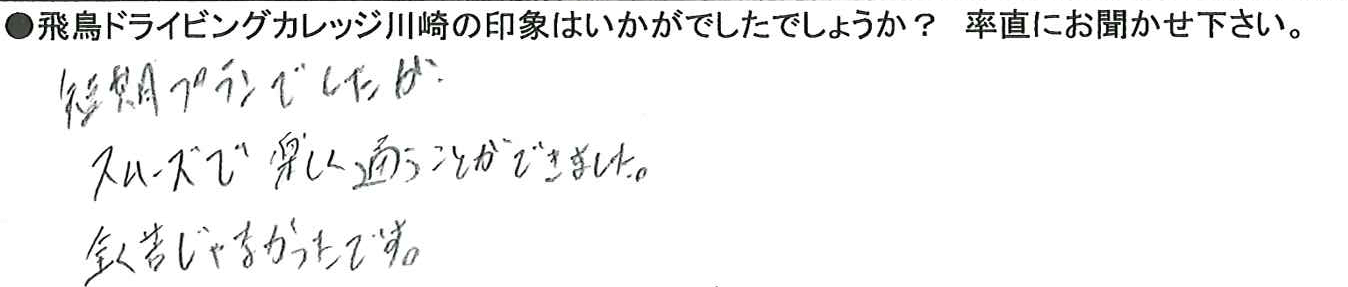 ●飛鳥ドライビングカレッジ川崎の印象はいかがでしたでしょうか？ 率直にお聞かせ下さい。
短期プランでしたが、
スムーズで楽しく通うことができました。
全く苦じゃなかったです。